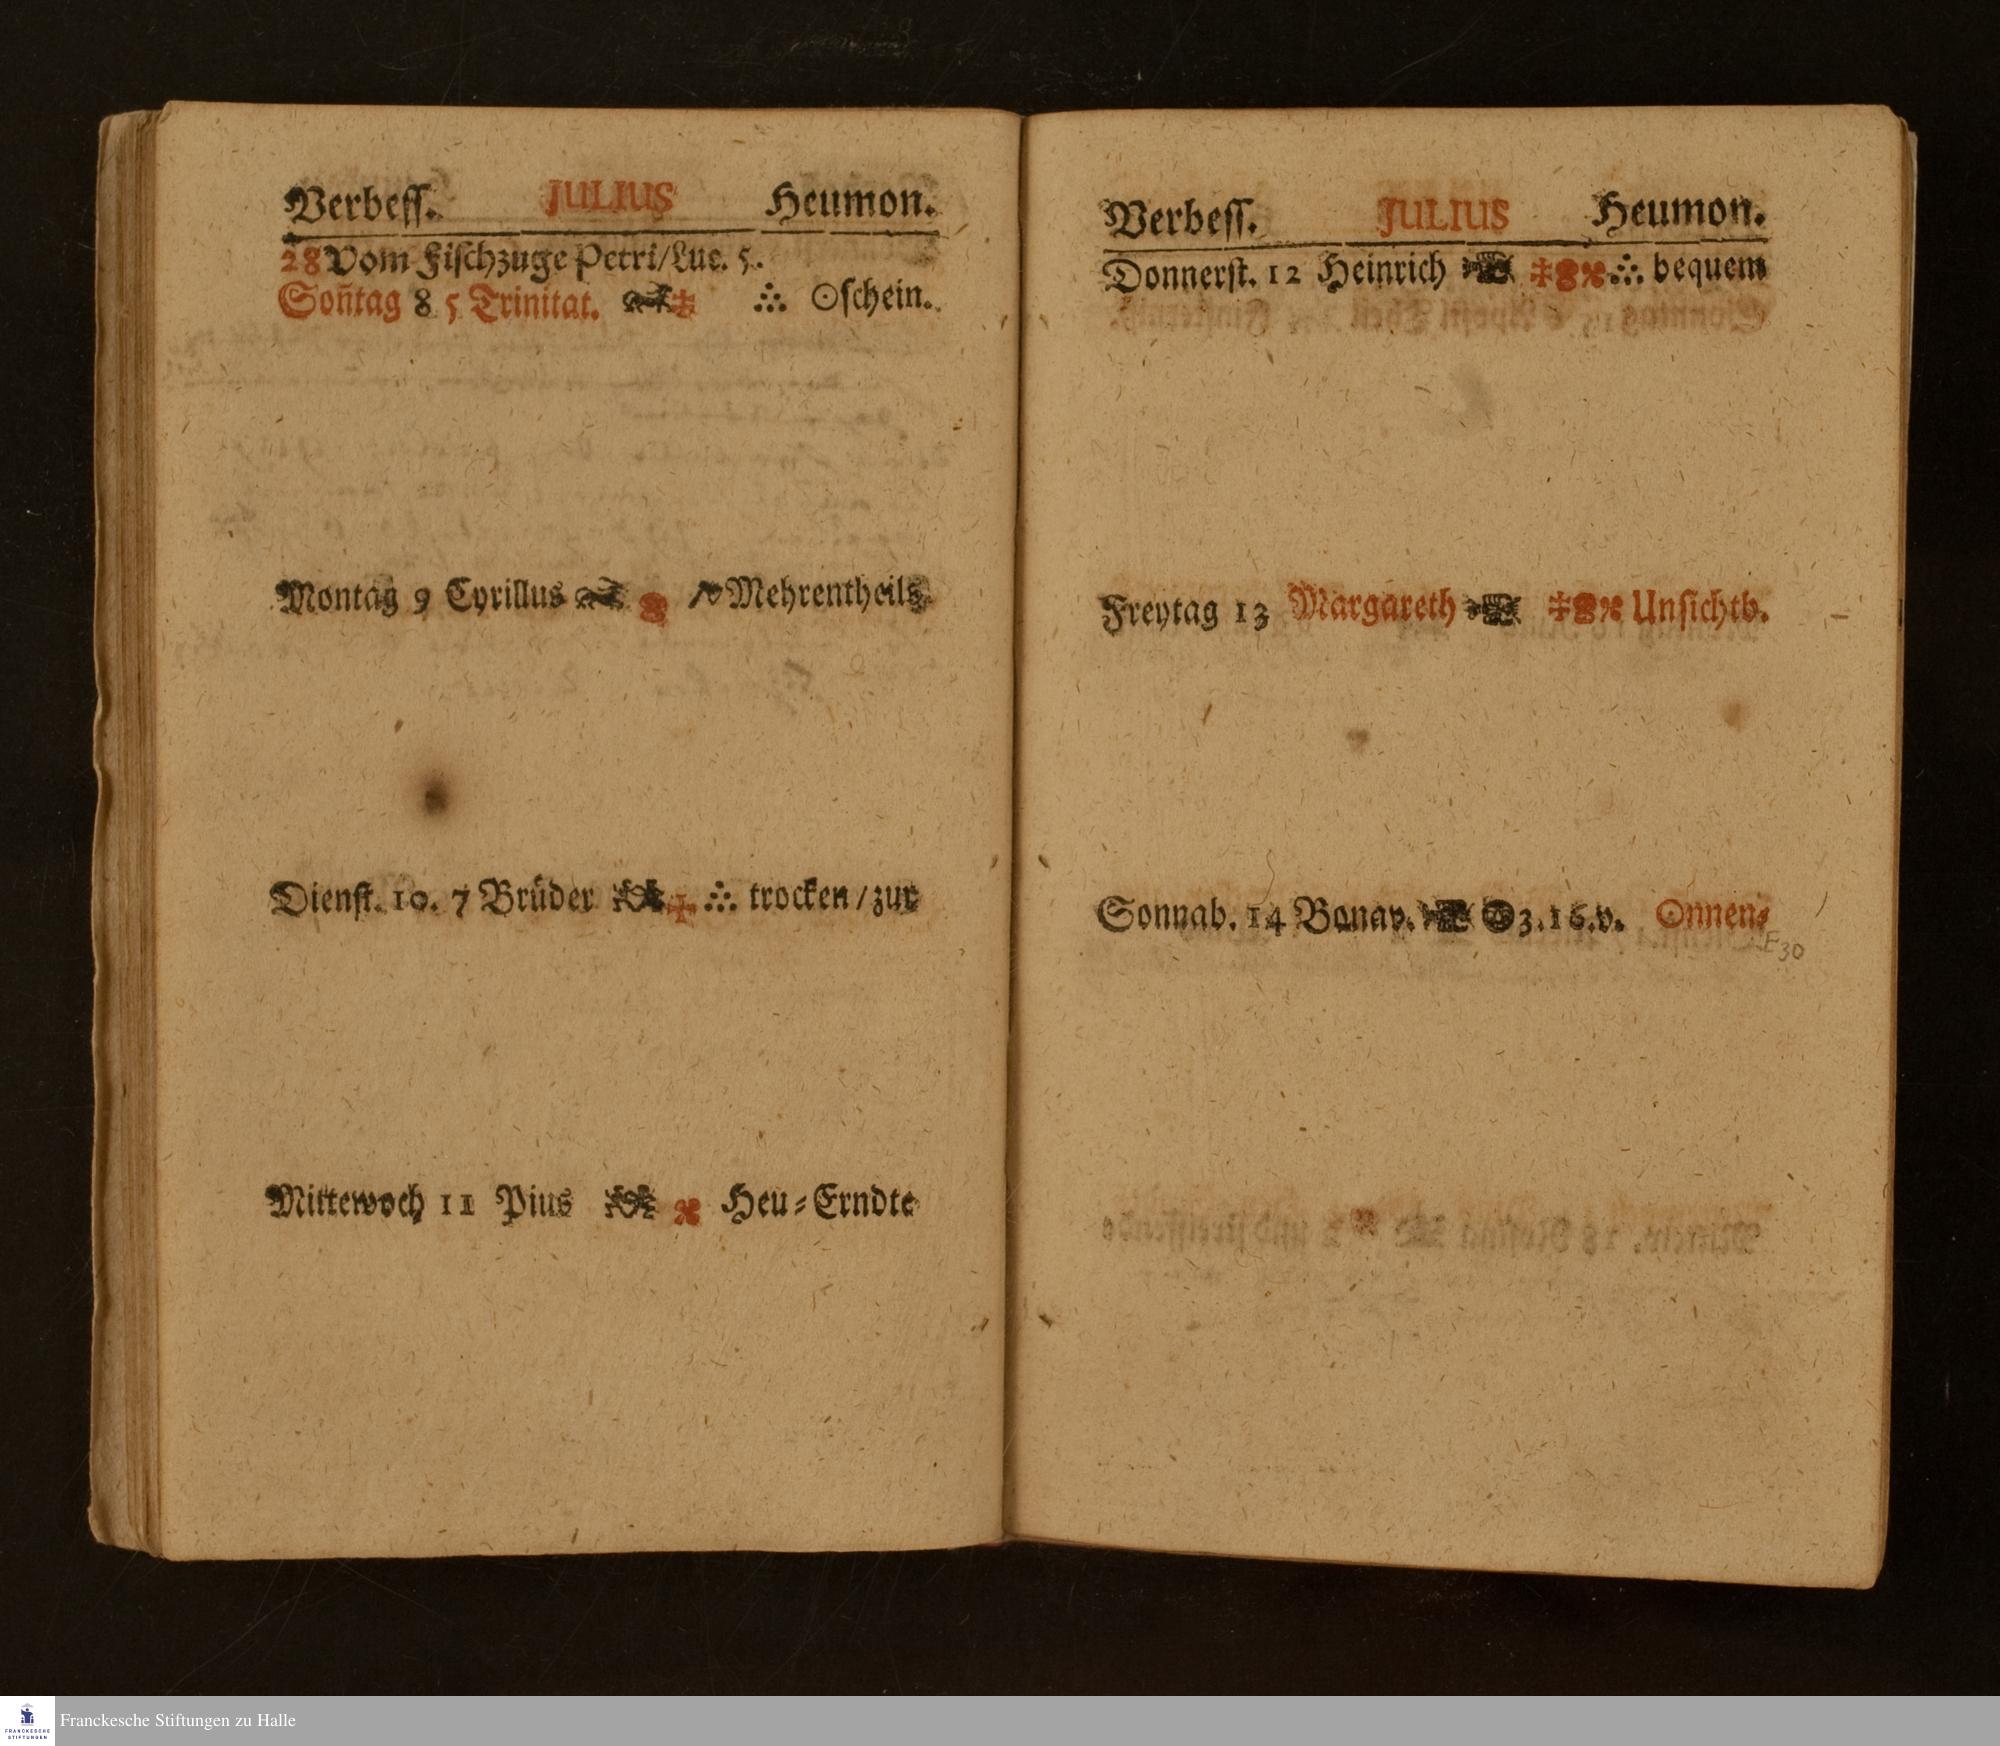 Verbeſſ. JULIUS Heumon.
28 Vom Fiſchzuge Petri/Luc. 5.
Soñtag 8 5 Trinitat. ☩ ⛬ ☉ſchein.
Montag 9 Cyrillus Mehrentheils
Dienſt. 10. 7 Brüder ☩ ⛬ trocken/zur
Mittewoch 11 Pius Heu-Erndte
Verbeſſ. JULIUS Heumon.
Donnerſt. 12 Heinrich bequem
Freytag 13 Margareth Unſichtb.
Sonnab. 14 Bonav. 3.16.v. ☉nnen-
E30
Franckesche Stiftungen zu Halle
FRANCKESCHE
STIFTUNGEN